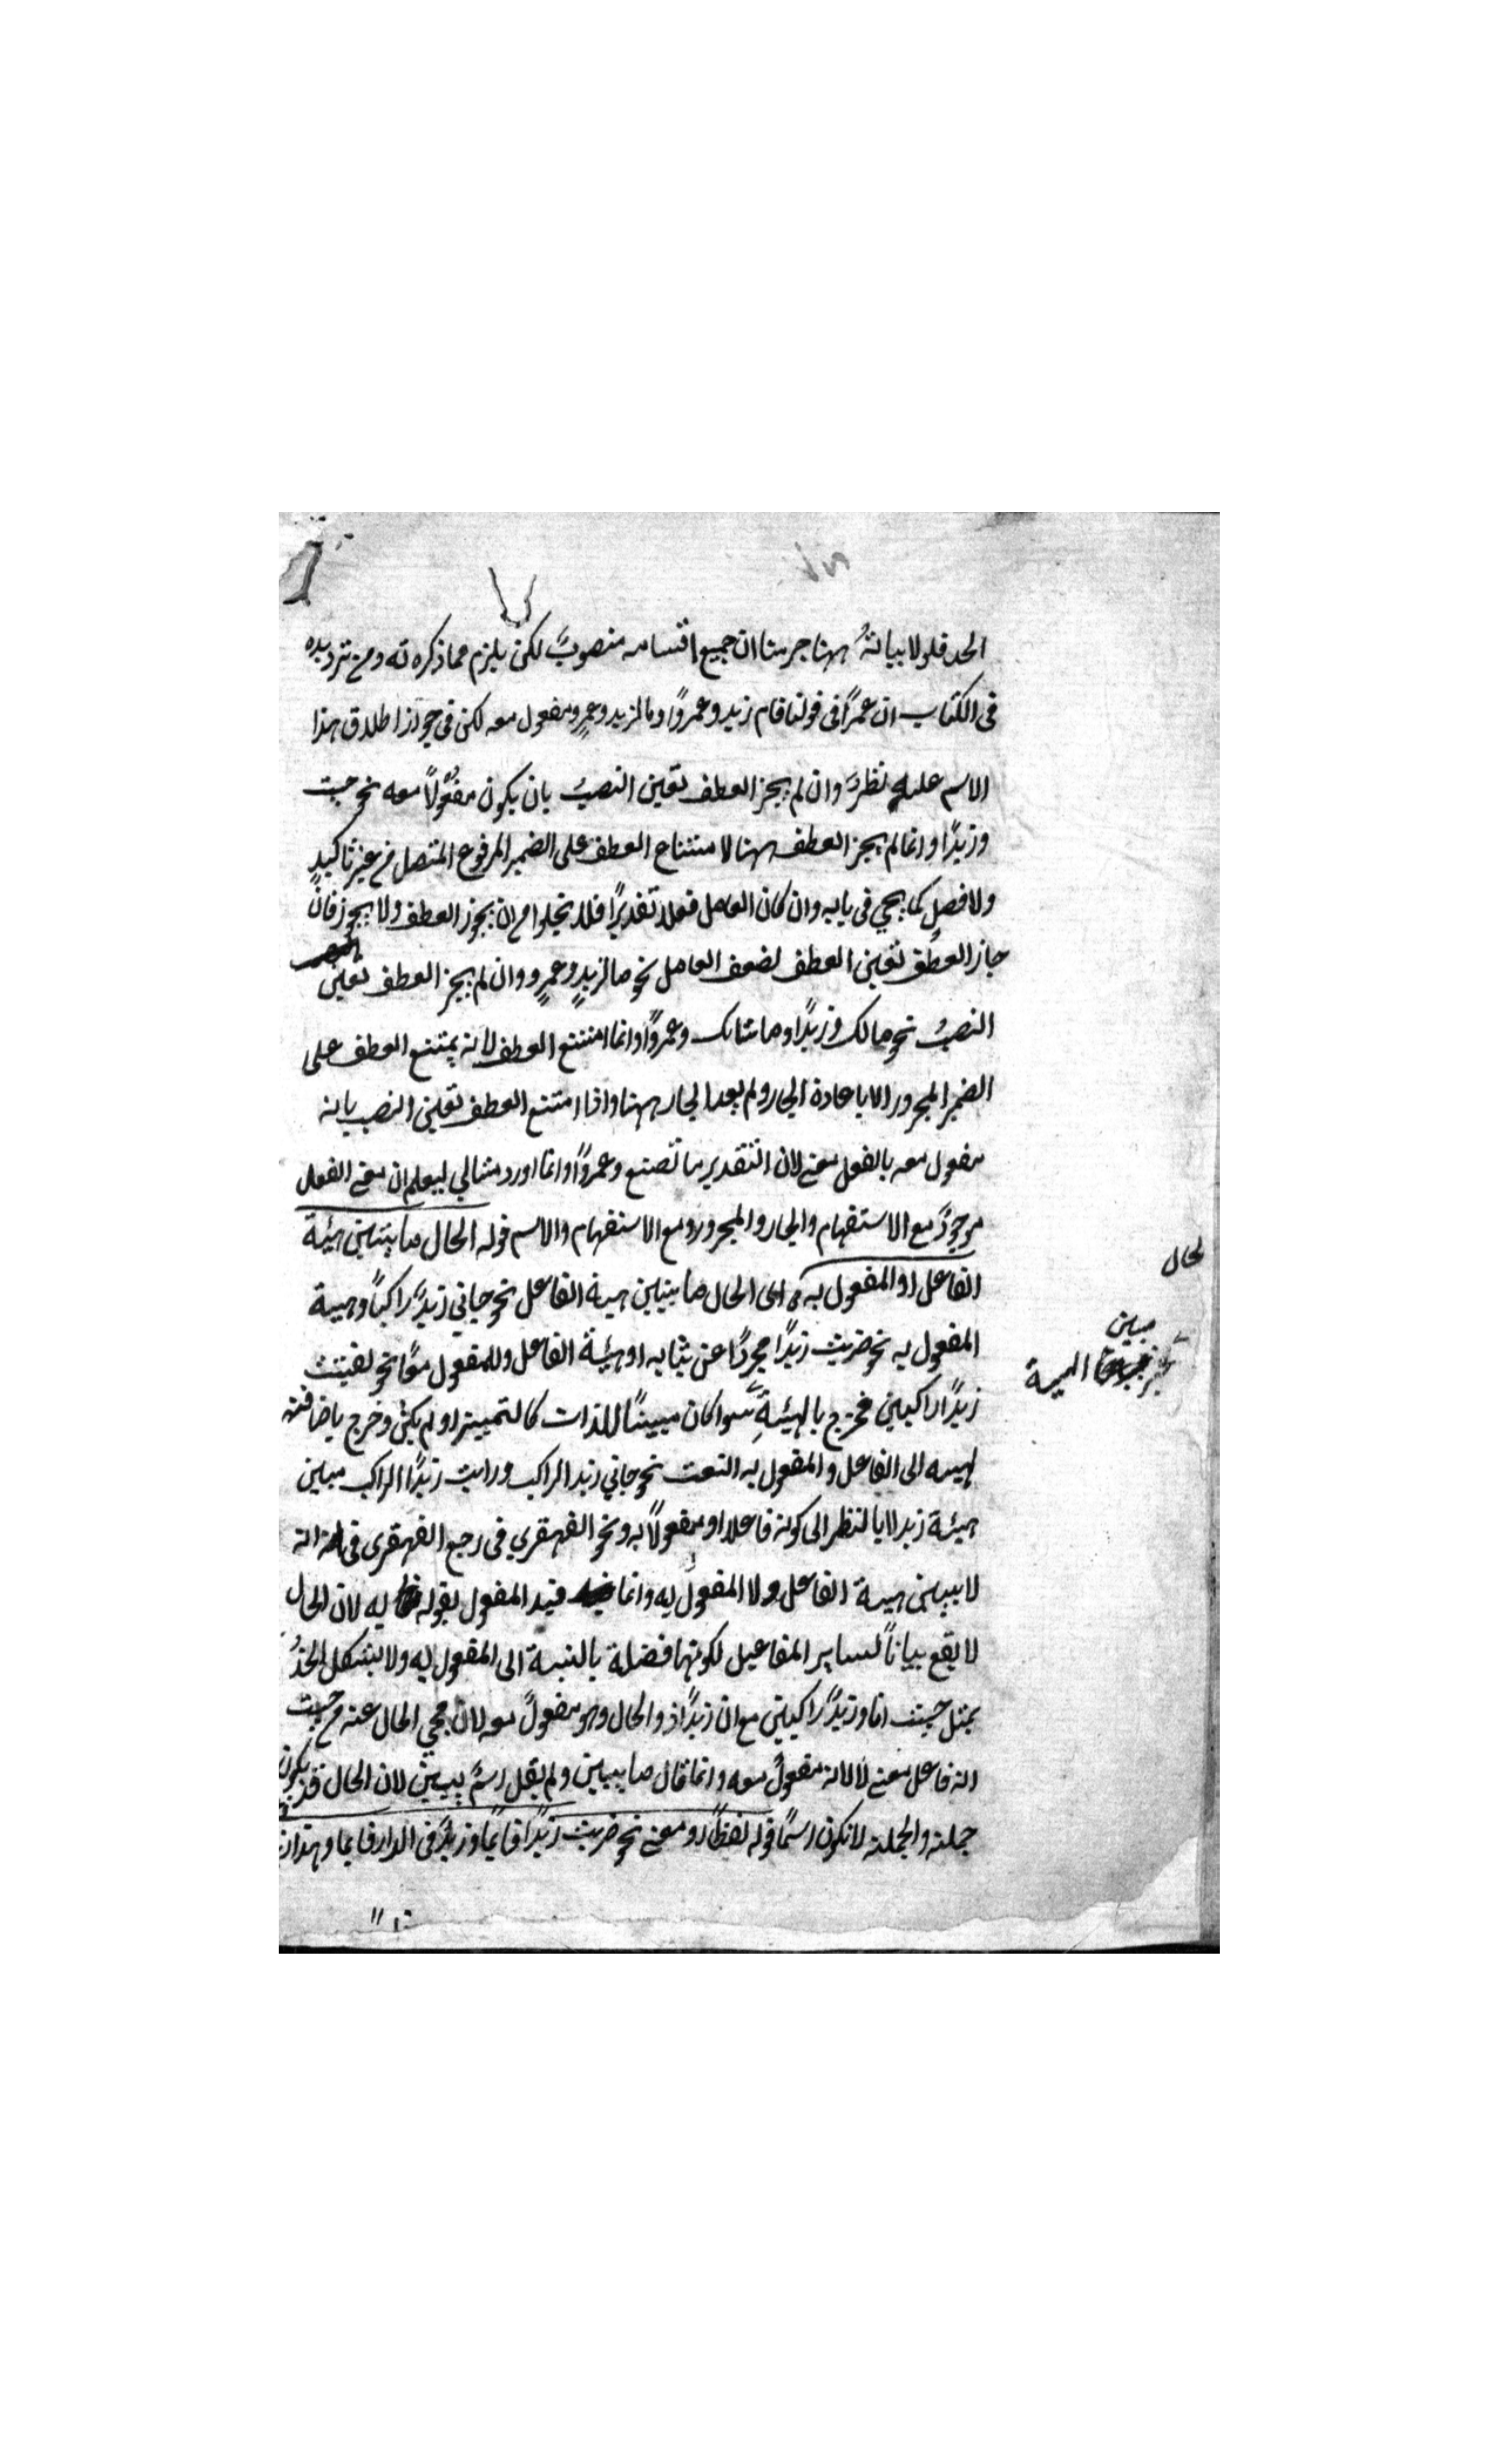 الحد فلولا بيانه ههنا جرينا ان جميع اقسامه منصوب لكن يلزم مما ذكره ته ومن ترديده
فى الكتاب ان عمرًا فى قولنا قام زيد وعمروًا وما لزيد وعمرٍو مفعول معه لكن فى جواز اطلاق هذا
الاسم عليه نظر وان لم يجز العطف تعين النصب بان يكون مفعولاً معه نحو جيت
وزيدًا وانما لم يجز العطف ههنا لامتناع العطف على الضمير المرفوع المتصل من غير تاكيد
ولا فصل كما يجي فى بابه وان كان العامل فعلا تقديرًا فلا يخلوا من ان يجوز العطف ولا يجوز فان
جاز العطف تعين العطف لضعف العامل نحو ما لزيدٍ وعمرٍو وان لم يجز العطف تعين
النصب نحو مالك وزيدًا وما شانك وعمروًا وانما امتنع العطف لانه يمتنع العطف على
الضمير المجرور الا باعادة الجار ولم يعد الجار ههنا واذا امتنع العطف تعين النصب بانه
مفعول معه بالفعل معنى لان التقدير ما تصنع وعمروًا وانما اورد مثالي ليعلم ان معنى الفعل
موجودٌ مع الاستفهام والجار والمجرور ومع الاستفهام والاسم قوله الحال ما يتبين هيئة
الفاعل او المفعول به اى الحال ما يتبين هيئة الفاعل نحو جاني زيدٌ راكبًا وهيئة
المفعول به نحو ضربت زيدًا مجردًا عن ثيابه او هيئة الفاعل والمفعول معًا نحو لقيتت
زيدًا راكبين فخرج بالهيئةِ سوا كان مبينًا للذات كالتمييز او لم يكن وخرج باضافته
لهيئه الى الفاعل والمفعول به النعت نحو جاني زيد الراكب ورايت زيدًا الراكب مبين
هيئة زيد لا بالنظر الى كونه فاعلا او مفعولاً به ونحو القهقري فى رجع القهقرى فى انه
لا يبين هيئة الفاعل ولا المفعول به وانما قيد المفعول بقوله به لان الحال
لا يقع بيانًا لساير المفاعيل لكونها فضلة بالنسبة الى المفعول به ولا يشكل الحدُ
بمثل جيت انا وزيدٌ راكبين مع ان زيدًا ذو الحال وهو مفعولٌ معه لان مجي الحال عنه من حيث
انه فاعل معنى لا لانه مفعولٌ معه وانما قال ما يبين ولم يقل اسمٌ يبين لان الحال قد يكون
جملة والجملة لا تكون اسمًا قوله لفظًا او معنى نحو ضربت زيدًا قايمًا وزيدٌ فى الدار قايما وهذا زيد
لحال
مبين
الهيئة